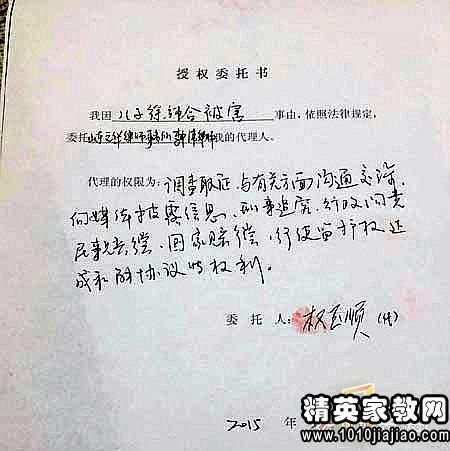 授权委托书
我因 儿子徐纯合被害 事由,依照法律规定,
委托 山东 律师事务所 律师 我的代理人。
代理的权限为: 调查取证、与有关方面沟通交涉、
向媒体披露信息、刑事追究、行政问责
民事赔偿、国家赔偿、行使监护权、达
成和解协议等权利。
委 托 人: 权玉顺 (代)
2015 年
精英家教网
www.1010jiajiao.com